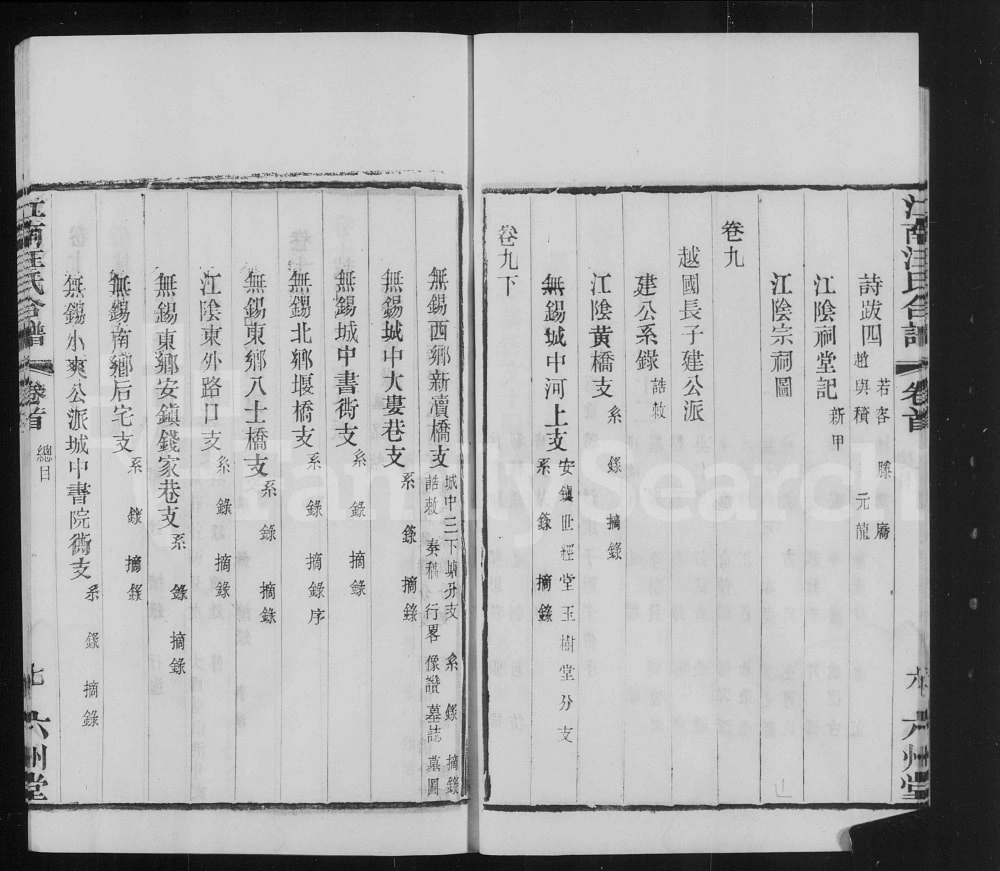 江南汪氏合譜 卷首 六 六州堂
詩跋四 若容 滕 元龍 趙與𥢶
江陰祠堂記 新甲
江陰宗祠圖
卷九
越國長子建公派
建公系錄 誥敕
江陰黃橋支 系錄 摘錄
無錫城中河上支 安鎮世經堂玉樹堂分支 系錄 摘錄
卷九下
無錫西鄉新瀆橋支 城中三下塘分支 系錄 摘錄 誥敕 奏稱 行畧 像讚 墓誌 墓圖
無錫城中大婁巷支 系錄 摘錄
無錫城中書衖支 系錄 摘錄
無錫北鄉堰橋支 系錄 摘錄 序
無錫東鄉八士橋支 系錄 摘錄
江陰東外路口支 系錄 摘錄
無錫東鄉安鎮錢家巷支 系錄 摘錄
無錫南鄉后宅支 系錄 摘錄
無錫小爽公派城中書院衖支 系錄 摘錄
江南汪氏合譜 卷首 總目 七 六州堂
FamilySearch